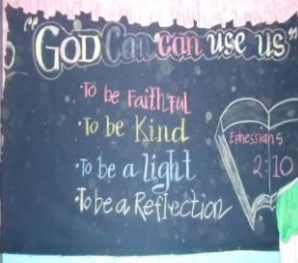 "GOD Can can use us"
· To be Faithful
· To be Kind
· To be a light
· To be a Reflection
Ephessians
2:10